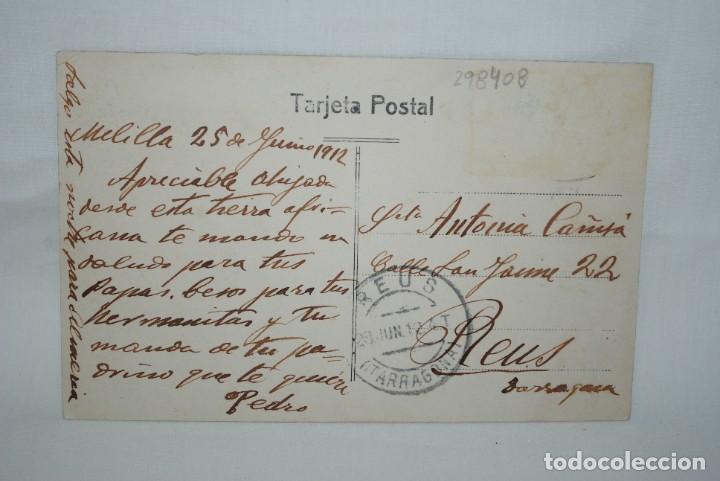 298408
Tarjeta Postal
Melilla 25 de Junio 1912
Apreciable ahijada
desde esta tierra afri-
cana te mando un
saludo para tus
Papas. besos para tus
hermanitas y tu
manda de tu pa-
drino que te quiere
Pedro
Salgo esta noche para Almeria
Srta Antonia
Calle San Jaime 22
Reus
Tarragona
REUS
JUN.12
(TARRAGONA)
todocoleccion.net